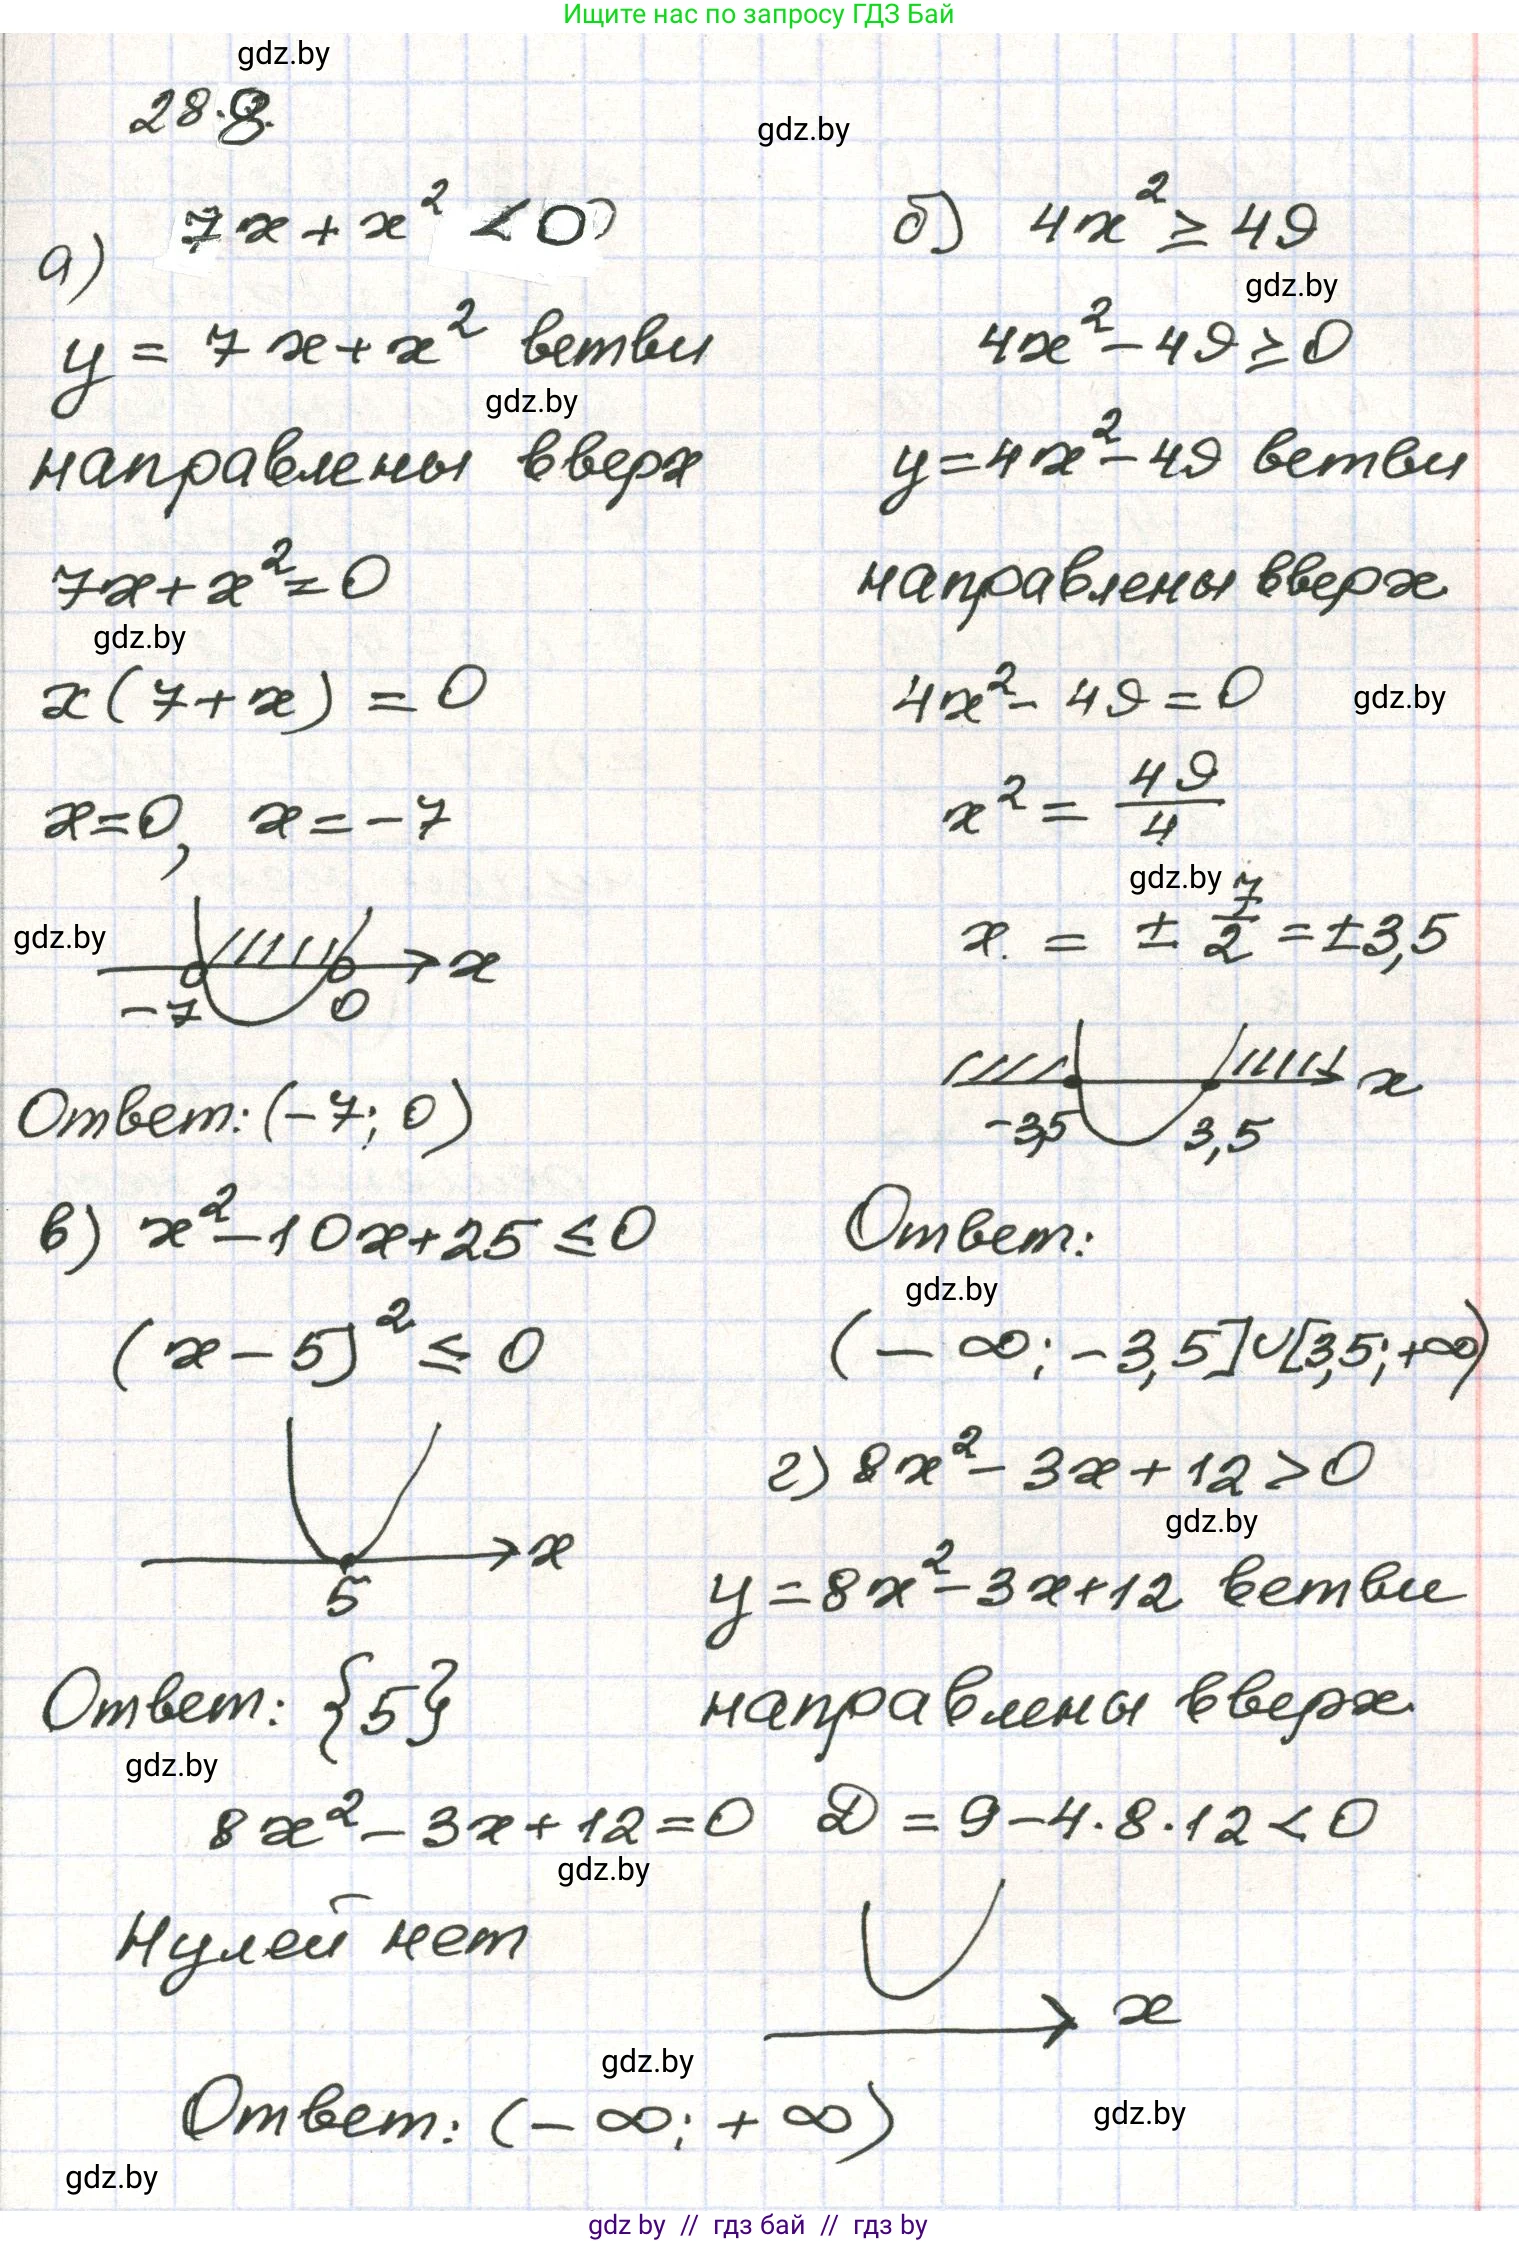 Ищите нас по запросу ГДЗ Бай
gdz.by
28.8.
gdz.by
а) 7x + x² < 0
y = 7x + x² ветви
gdz.by
направлены вверх
7x + x² = 0
gdz.by
x(7 + x) = 0
x = 0, x = -7
gdz.by
x
-7 0
Ответ: (-7; 0)
б) 4x² ≥ 49
gdz.by
4x² - 49 ≥ 0
y = 4x² - 49 ветви
направлены вверх
4x² - 49 = 0
gdz.by
x² = 49/4
gdz.by
x = ± 7/2 = ±3,5
x
-3,5 3,5
Ответ:
gdz.by
(-∞; -3,5]∪[3,5; +∞)
в) x² - 10x + 25 ≤ 0
(x - 5)² ≤ 0
x
5
Ответ: {5}
gdz.by
г) 8x² - 3x + 12 > 0
gdz.by
y = 8x² - 3x + 12 ветви
направлены вверх
8x² - 3x + 12 = 0 D = 9 - 4·8·12 < 0
gdz.by
Нулей нет
x
gdz.by
Ответ: (-∞; +∞)
gdz.by
gdz.by
gdz by // гдз бай // гдз by